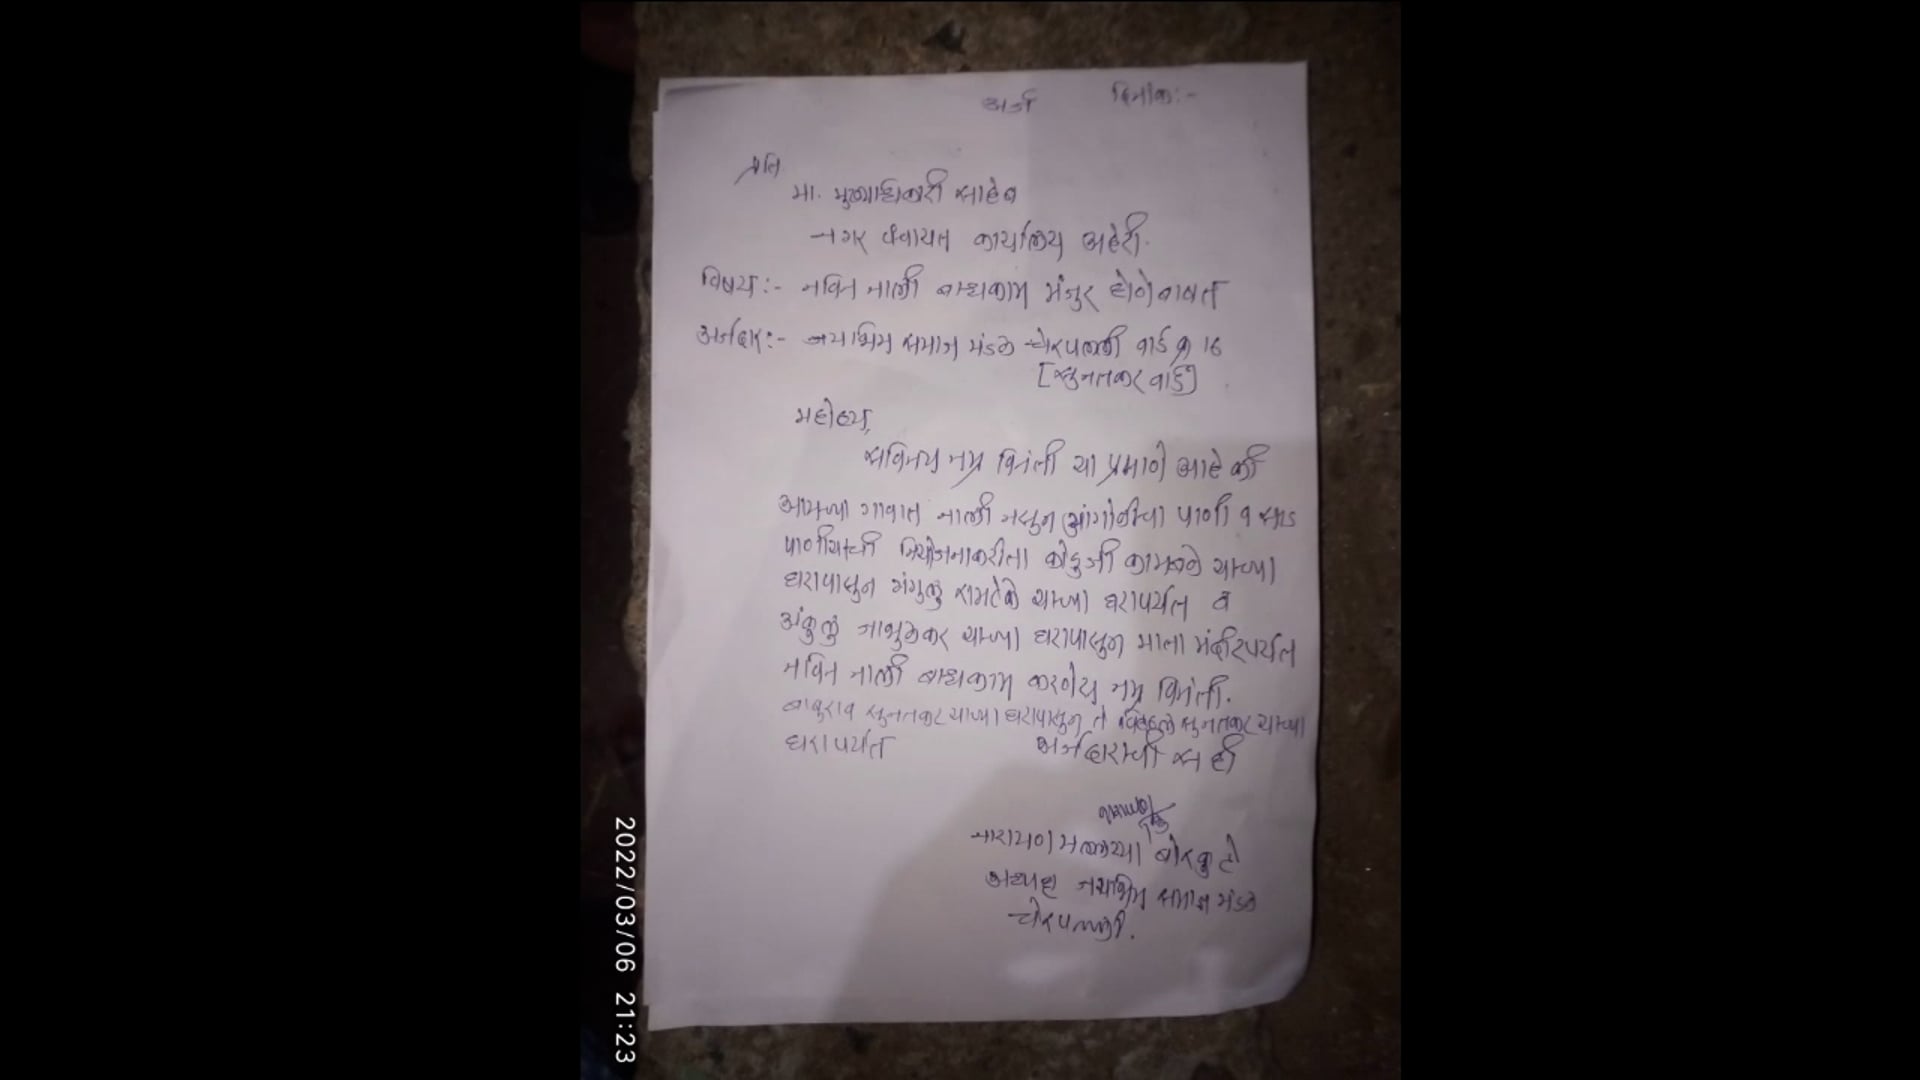 अर्ज दिनांक:-
प्रति
मा. मुख्याधिकारी साहेब
नगर पंचायत कार्यालय अहेरी.
विषय:- नविन नाली बांधकाम मंजुर होणे बाबत
अर्जदार:- जयभिम समाज मंडळ चेरपल्ली वार्ड क्र 16
[सुनतकर वार्ड]
महोदय,
सविनय नम्र विनंती या प्रमाणे आहे की
आमच्या गावात नाली नसुन आंगोळीचा पाणी व सांड
पाणीयाची नियोजनाकरीता कोंडुजी कामळे यांच्या
घरापासुन गंगुलु रामटेके यांच्या घरापर्यंत व
अंकुलु जाभुळकर यांच्या घरापासुन माता मंदीरपर्यंत
नविन नाली बांधकाम करणेस नम्र विनंती.
बाबुराव सुनतकर यांच्या घरापासुन ते विठ्ठल सुनतकर यांच्या
घरापर्यंत अर्जदाराची सही
नारायण मल्लय्या बोरकुटे
अध्यक्ष जयभिम समाज मंडळ
चेरपल्ली.
2022/03/06 21:23